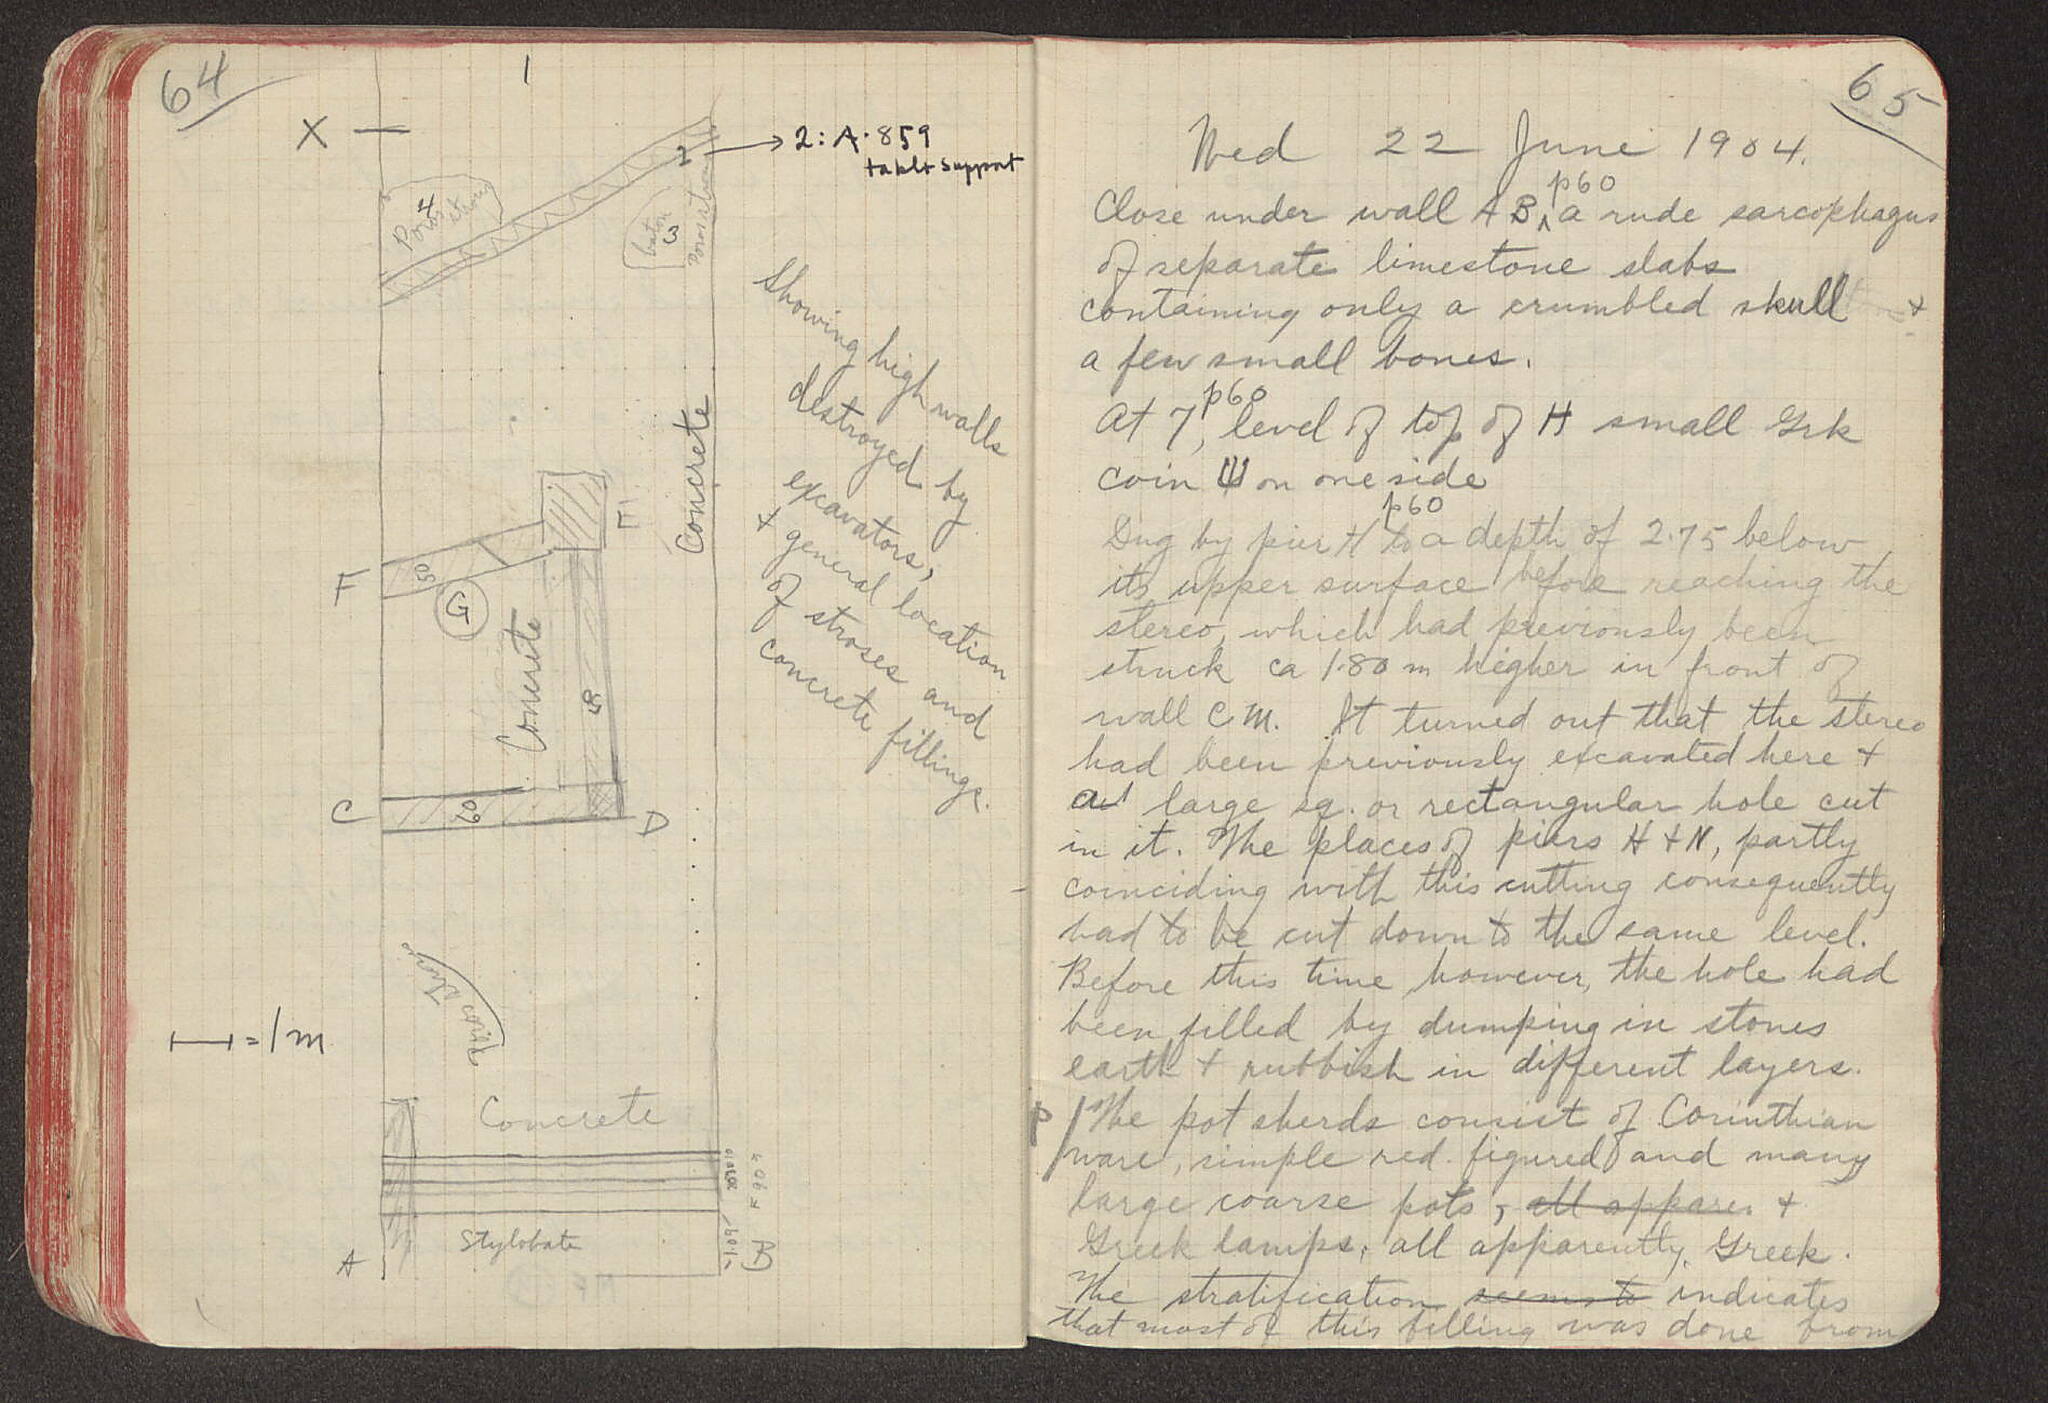 64
1
X
2: A. 859
table support
2
4
Poros
3
Poros
Showing high walls
destroyed by
excavators,
+ general location
of stroses and
concrete fillings.
Concrete
E
F
G
Concrete
C
D
= 1 m
Concrete
Stylobate
A
B
65
Wed 22 June 1904.
p60
Close under wall AB, a rude sarcophagus
of separate limestone slabs
containing only a crumbled skull +
a few small bones.
p60
At 7, level of top of H small Grk
coin Ψ on one side
p60
Dug by pier H to a depth of 2.75 below
its upper surface before reaching the
stereo, which had previously been
struck ca 1.80 m higher in front of
wall C M. It turned out that the stereo
had been previously excavated here +
a large sq. or rectangular hole cut
in it. The places of piers H + N, partly
coinciding with this cutting consequently
had to be cut down to the same level.
Before this time, however, the hole had
been filled by dumping in stones
earth + rubbish in different layers.
P
The pot sherds consist of Corinthian
ware, simple red figured and many
large coarse pots, all appare. +
Greek lamps, all apparently, Greek.
The stratification seems to indicates
that most of this filling was done from